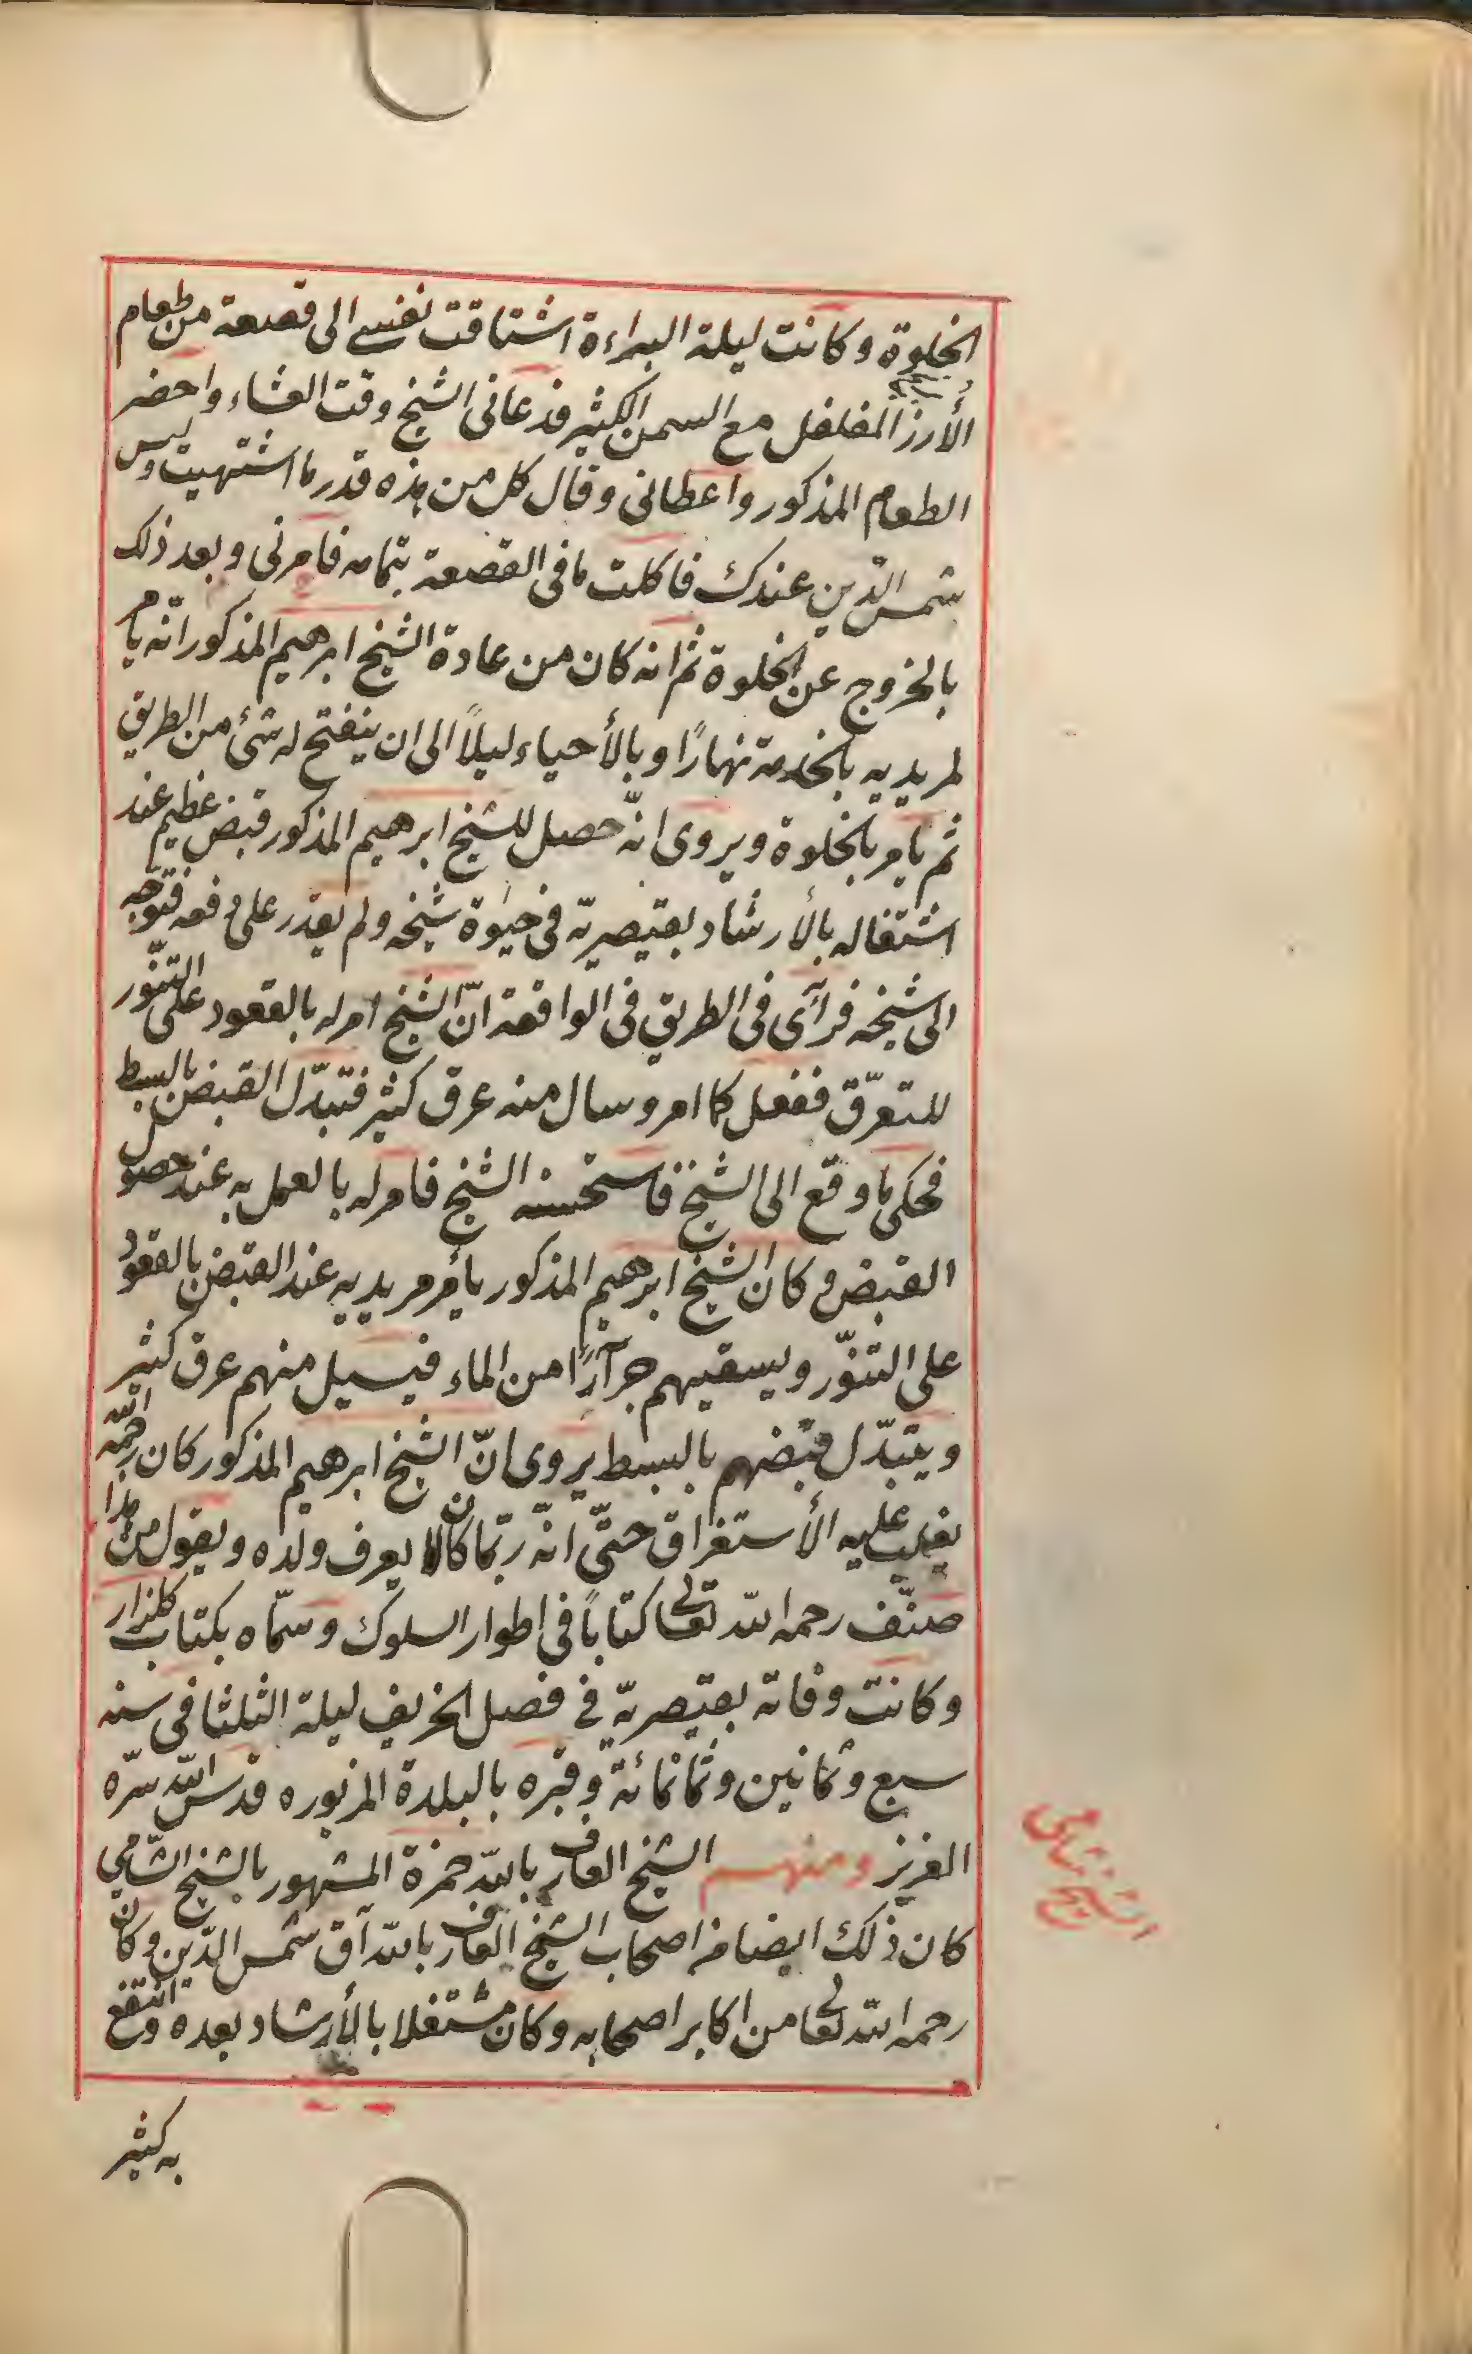 الخلوة وكانت ليلة البراءة اشتاقت نفسى الى قصعة من طعام
الأرز المفلفل مع السمن الكثير فدعانى الشيخ وقت العشاء واحضر
الطعام المذكور واعطانى وقال كل من هذه قدر ما اشتهيت وليس
شمس الدّين عندك فاكلت ما فى القصعة بتمامه فامرنى وبعد ذلك
بالخروج عن الخلوة ثم انه كان من عادة الشيخ ابرهيم المذكور انّه يأمر
لمريديه بالخدمة نهارًا وبالأحياء ليلاً الى ان ينفتح له شئ من الطريق
ثم يأمر بالخلوة ويروى انّه حصل للشيخ ابرهيم المذكور قبض عظيم عند
اشتغاله بالأرشاد بقيصريّة فى حيوة شيخه ولم يقدر على دفعه فتوجّه
الى شيخه فرآى فى الطريق فى الواقعة انّ الشيخ امر له بالقعود على التنّور
للتعرّق ففعل كما امر وسال منه عرق كثير فتبدّل القبض بالبسط
فحكى ما وقع الى الشيخ فاستحسنه الشيخ فامر له بالعمل به عند حصول
القبض وكان الشيخ ابرهيم المذكور يأمر مريديه عند القبض بالقعود
على التنّور ويسقيهم جرآرًا من الماء فيسيل منهم عرق كثير
ويتبدّل قبضهم بالبسط يروى انّ الشيخ ابرهيم المذكور كان رحمه الله
يغلب عليه الأستغراق حتّى انّه ربّما كان لا يعرف ولده ويقول من هذا
صنّف رحمه الله تعالى كتابًا فى اطوار السلوك وسمّاه بكتاب كلزار
وكانت وفاته بقيصريّة فى فصل الخريف ليلة الثلثا فى سنه
سبع وثمانين وثمانمائة وقبره بالبلدة المزبوره قدس الله سرّه
العزيز ومنهم الشيخ العارف بالله حمزة المشهور بالشيخ الشّامى
كان ذلك ايضا من اصحاب الشيخ العارف بالله آق شمس الدّين وكان
رحمه الله تعالى من اكابر اصحابه وكان مشتغلا بالأرشاد بعده وانتفع
به كثير
الشيخ شامى